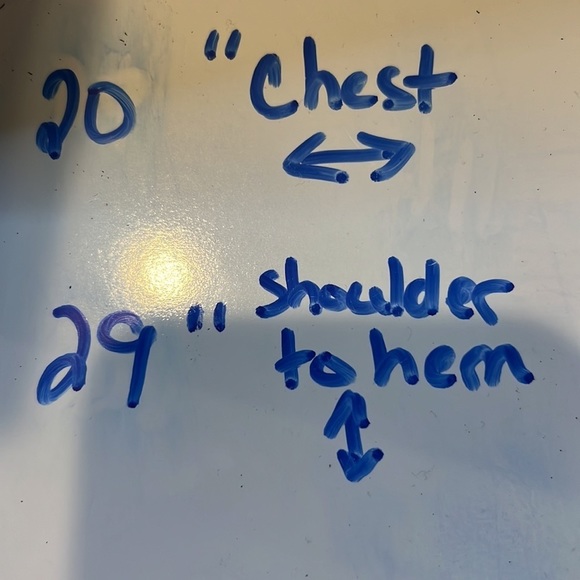 20 " Chest
29 " shoulder
to hem